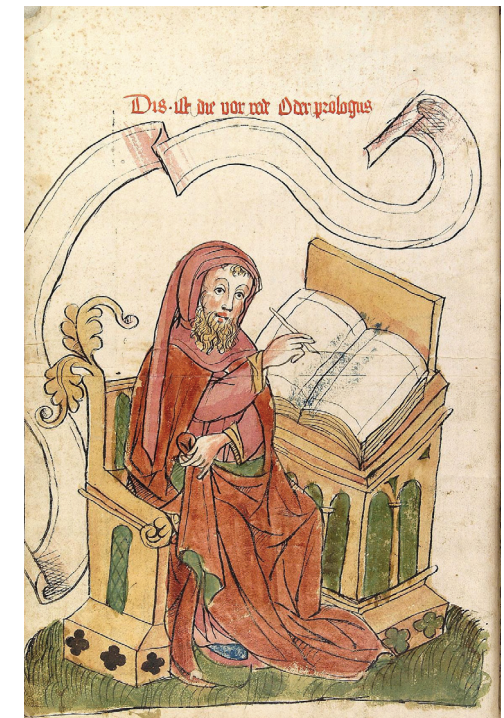 Dis · ist die vor red Oder prologus